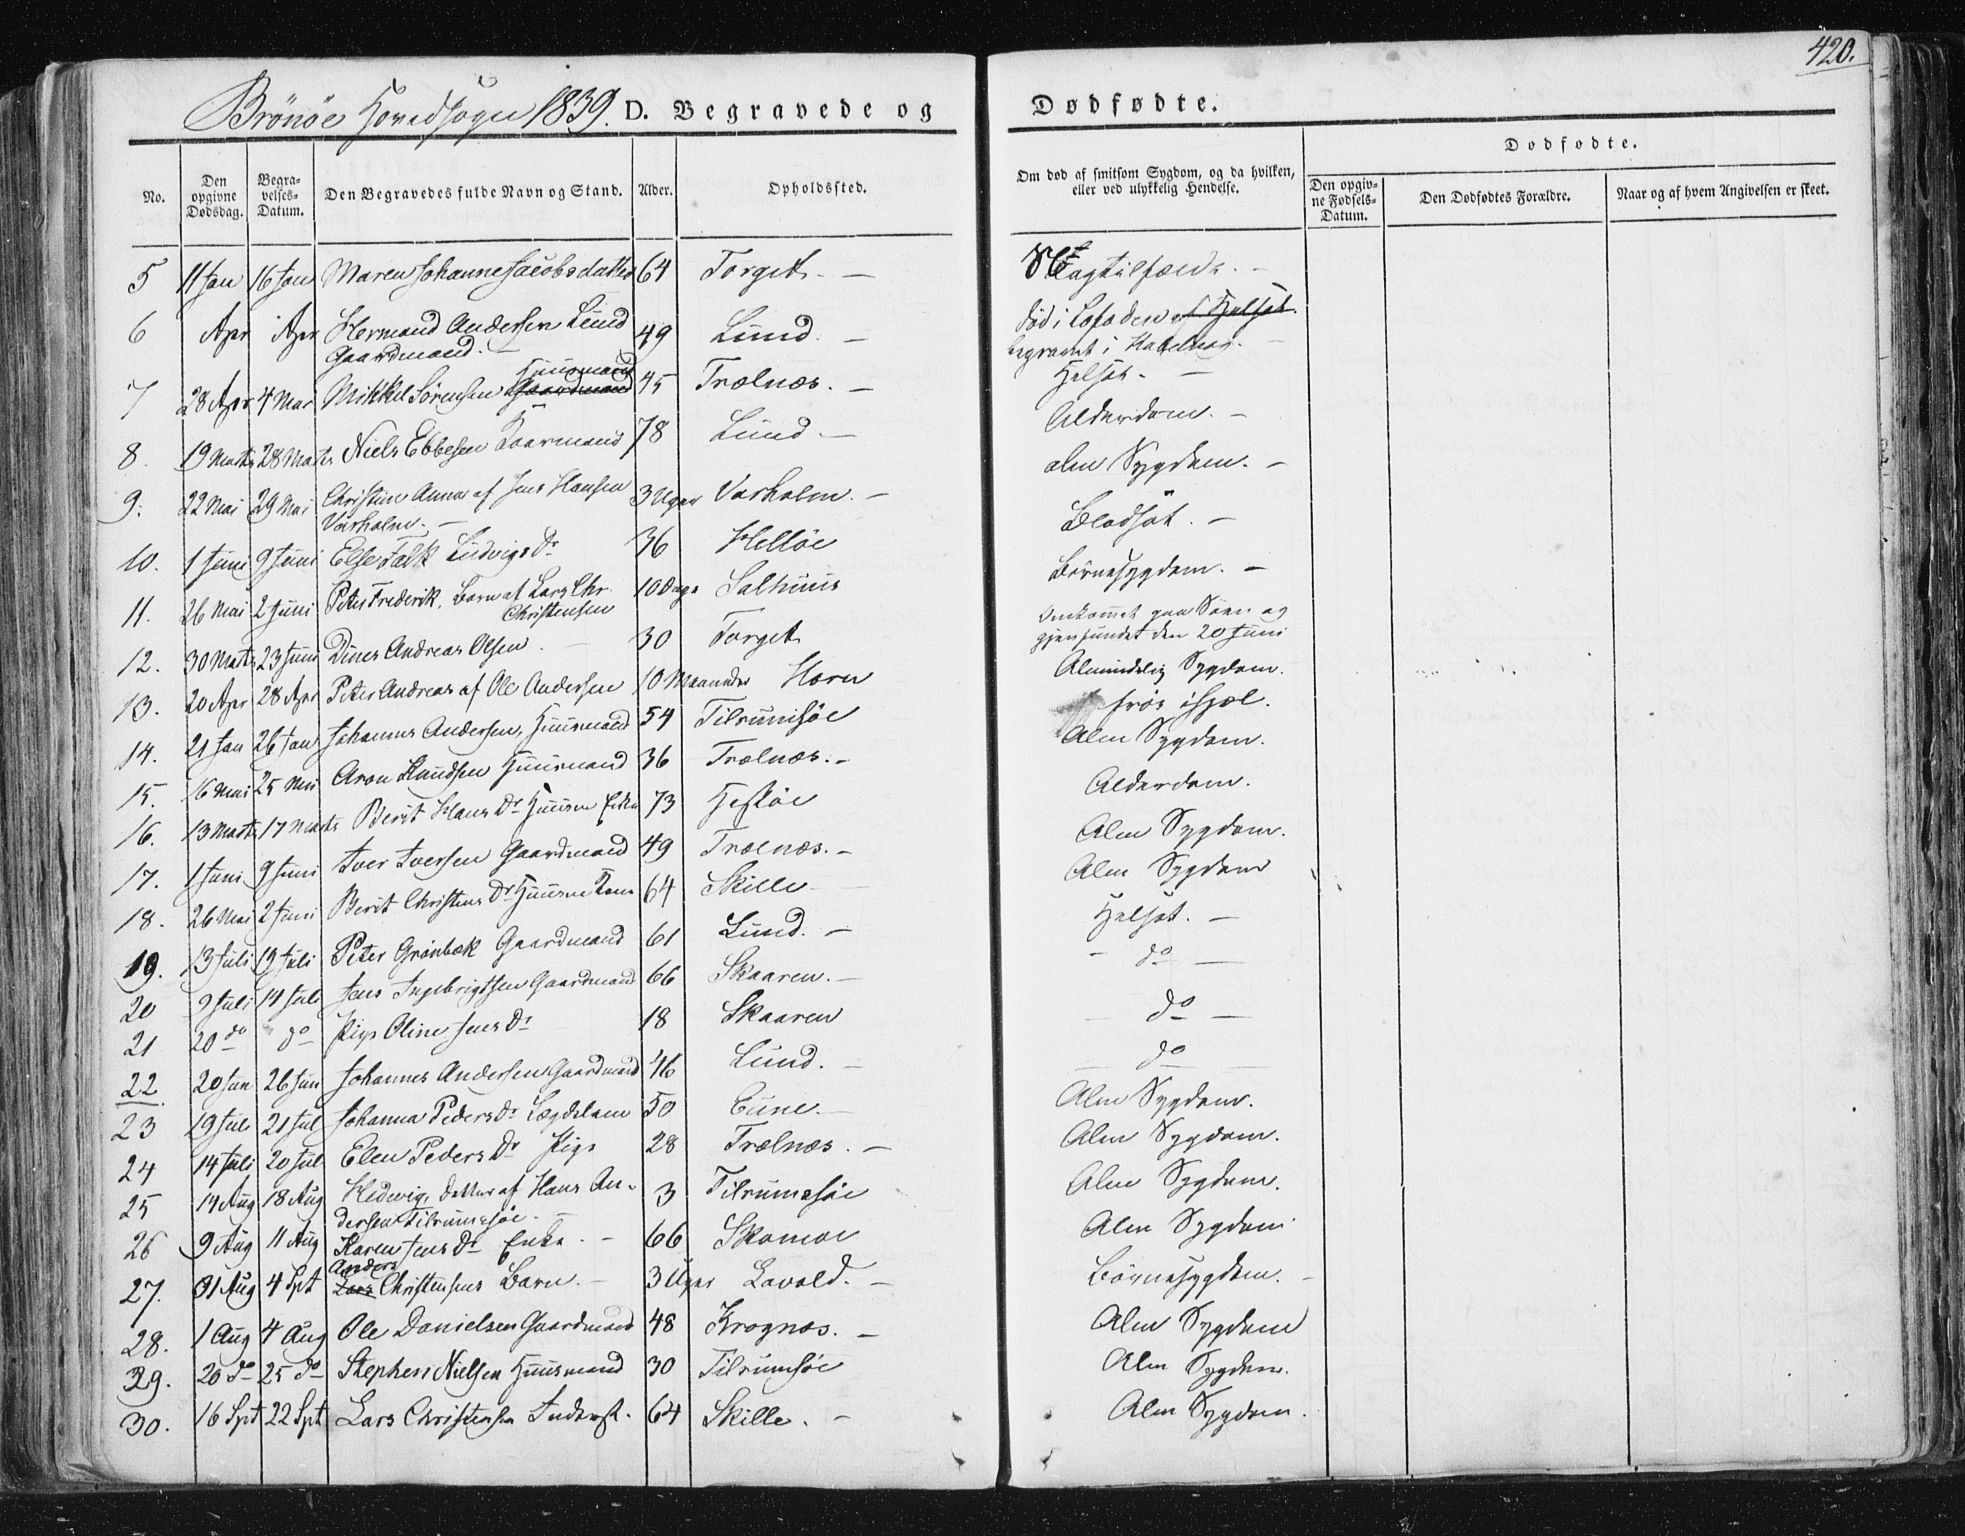 420.
Brönöe Hovedsogn 1839. D. Begravede og Dødfødte.
No.
Den opgivne Dødsdag.
Begravelses-Datum.
Den Begravedes fulde Navn og Stand.
Alder.
Opholdssted.
Om død af smitsom Sygdom, og da hvilken, eller ved ulykkelig Hendelse.
Dødfødte.
Den opgivne Fødsels-Datum.
Den Dødfødtes Forældre.
Naar og af hvem Angivelsen er skeet.
5 11 Jan 16 Jan Maren Johanne Jacobsdatter 64 Torget. — Slagtilfælde. —
6 Apr Apr Hermand Andersen Lund 49 Lund. — død i Lofoden af Halsot.
Gaardmand. — begravet i
7 28 Apr 4 Mai Mikkel Sörensen Gaardmand Huusmand 45 Trælnæs. — Halsot. —
8. 19 Marts 28 Marts Niels Ebbesen Kaarmand 78 Lund. — Alderdom. —
9. 22 Mai 29 Mai Christine Anna af Jens Hansen 3 Uger Varholm. — alm Sygdom. —
Varholm. —
10. 1 Juni 9 Juni Else Falk Ludvigs Dr 36 Hellöe Blodsot. —
11. 26 Mai 2 Juni Peter Frederik, Barn af Lars Chr. 10 Dage Salhuus Börnesygdom. —
Christensen
12. 30 Marts 23 Juni Dines Andreas Olsen 30 Torget omkommet paa Söen og
gjenfundet den 20 Juni
13. 20 Apr 28 Apr Peter Andreas af Ole Andersen 10 Maaneder Horn Almindelig Sygdom.
14. 21 Jan 26 Jan Johannes Andersen, Huusmand 54 Tilrumsöe frös ihjel.
15. 16 Mai 25 Mai Aron Knudsen Huusmand 36 Trælnæs. — Alm Sygdom.
16. 13 Marts 17 Marts Berit Hans Dr Huusm Enke 73 Hestöe Alderdom.
17. 1 Juni 9 Juni Iver Iversen Gaardmand 49 Trælnæs. — Alm Sygdom.
18. 26 Mai 2 Juni Berit Christens Dr Huusm Kone 64 Skille Alm Sygdom
19. 13 Juli 19 Juli Peter Grönbæk Gaardmand 61 Lund. — Halsot. —
20 9 Juli 14 Juli Jens Ingebrigtsen Gaardmand 66 Skaaren. — do —
21 20 do do Pige Oline Jens Dr 18 Skaaren — do —
22 20 Jun 26 Jun Johannes Andersen Gaardmand 46 Lund. — do —
23 19 Jul 21 Jul Johanna Peders Dr Lægdslem 50 — Alm Sygdom.
24 14 Juli 20 Jul Elen Peders Dr Pige 28 Trælnæs. — Alm Sygdom.
25 14 Aug 18 Aug Hedwig, Datter af Hans An- 3 Tilrumsöe Alm Sygdom.
dersen Tilrumsöe. —
26 9 Aug 11 Aug Karen Jens Dr Enke. — 66 Skomoe Alm Sygdom
27. 31 Aug 4 Spt Lars Anders Christensens Barn. — 3 Uger Lavold. — Börnesygdom. —
28. 1 Aug 4 Aug Ole Danielsen Gaardmand 48 Krognæs. — Alm Sygdom
29. 20 do 25 do Stephen Nielsen Huusmand 30 Tilrumsöe Alm Sygdom.
30. 16 Spt 22 Spt Lars Christensen Inderst. 64 Skille. — Alm Sygdom.